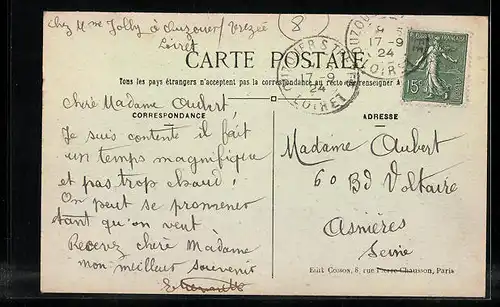 chez Mme Jolly à Ouzouer s/ Trézée
Loiret
8
CARTE POSTALE
Tous les pays étrangers n'acceptent pas la correspondance au recto se renseigner à
OUZOUER S. T
17-9
24
LOIRET
OUZOU
17-9
24
LOIR
15c
CORRESPONDANCE
ADRESSE
Chère Madame Aubert
Je suis contente il fait
un temps magnifique
et pas trop chaud !
On peut se promener
tant qu'on veut
Recevez chère Madame
mon meilleur souvenir
Madame Aubert
60 Bd Voltaire
Asnières
Seine
Edit Cosson, 8, rue Pierre-Chausson, Paris